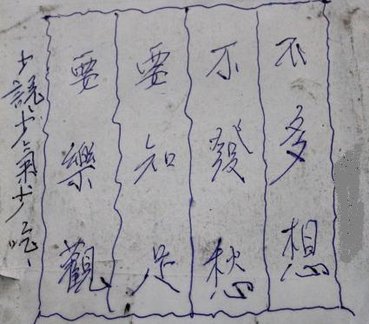 不多想
不發愁
要知足
要樂觀
少說少氣少吃